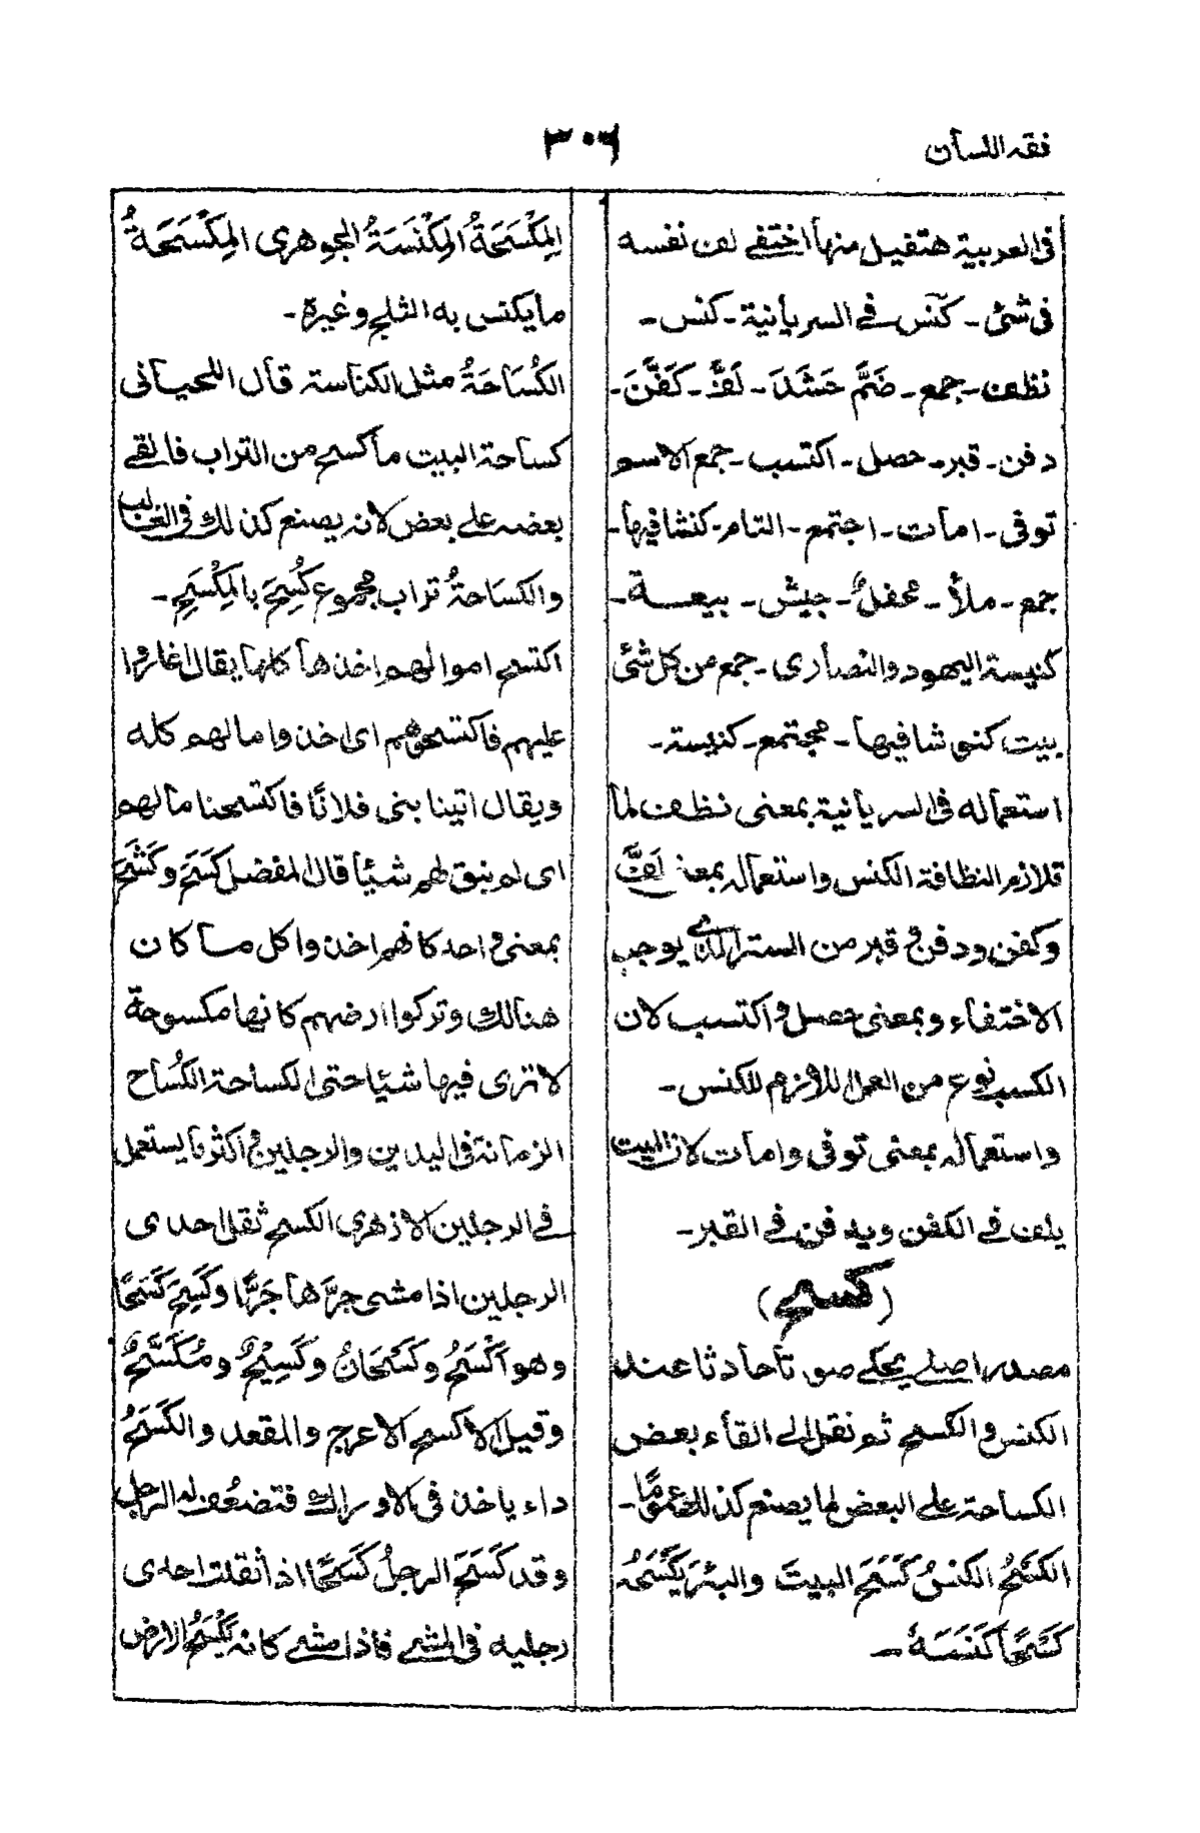 فقه اللسان
٣٠٦
فی العربیة هتفیل منها اختفے لف نفسه
فی شئ ـ کنس فے السریانیة ـ کنس ـ
نظف ـ جمع ـ ضَمَّ حَشَدَ ـ لَفَّ ـ کَفَّنَ ـ
دفن ـ قبر ـ حصل ـ اکتسب ـ جمع الاسم
توفی ـ امات ـ اجتمع ـ التام ـ کنشافیها ـ
جمع ـ ملأ ـ محفلٌ ـ جیش ـ بیعسة ـ
کنیسة الیهود والنصاری ـ جمع من کل شئ
بیت کنوشافیها ـ مجتمع ـ کنیسة ـ
استعماله فی السریانیة بمعنی نظف لما
تلازم النظافة الکنس واستعماله بمعنے لفَّ
وکفن ودفن و قبر من الستر الذی یوجب
الاختفاء وبمعنی حصل و اکتسب لان
الکسب نوع من العمل اللازم للکنس ـ
واستعماله بمعنی توفی وامات لان المیت
یلف فے الکفن ویدفن فے القبر ـ
(کسح)
مصدر اصلے یحکے صوتا حادثا عند
الکنس و الکسح ثم نقل الے القاء بعض
الکساحة علے البعض لما یصنع کذلك عمومًا ـ
الکَسْحُ الکنسُ کَسَحَ البیتَ والبئرَ یَکْسَحُه
کَسْحًا کَنَسَهٗ ـ
المِکْسَحَةُ المِکْنَسَةُ الجوهری المِکْسَحَةُ
ما یکنس به الثلج وغیره ـ
الکُسَاحَةُ مثل الکناسة قال اللحیانی
کساحة البیت ما کسح من التراب فالقے
بعضه علے بعض لانه یصنع کذلك فی الغالب
والکسَاحَةُ تراب مجموع کُسِحَ بالمِکْسَحِ ـ
اکتسح اموالهم اخذها کلها یقال اغاروا
علیهم فاکتسحوهم ای اخذوا مالهم کله
ویقال اتینا بنی فلانًا فاکتسحنا مالهم
ای لم نبق لهم شیئا قال المفضل کَسَحَ وکَثَحَ
بمعنی واحد کانهم اخذوا کل ما کان
هنالك وترکوا ارضهم کانها مکسوحة
لا تری فیها شیئا حتی الکساحة الکُسَاح
الزمانة فی الیدین والرجلین و اکثر ما یستعمل
فے الرجلین الازهری الکسح ثقل احدی
الرجلین اذا مشی جرّها جَرًّا وکَسِحَ کَسَحًا
وهو اَکْسَحُ وکَسْحَانُ وکَسِیْحٌ ومُکَسَّحٌ
وقیل الاکسح الاعرج والمقعد والکَسَحُ
داء یاخذ فی الاوراك فتضعُف له الرجل
وقد کَسَحَ الرجلُ کَسَحًا اذا ثقلت احدی
رجلیه فی المشے فاذا مشے کانه یَکْسَحُ الارض